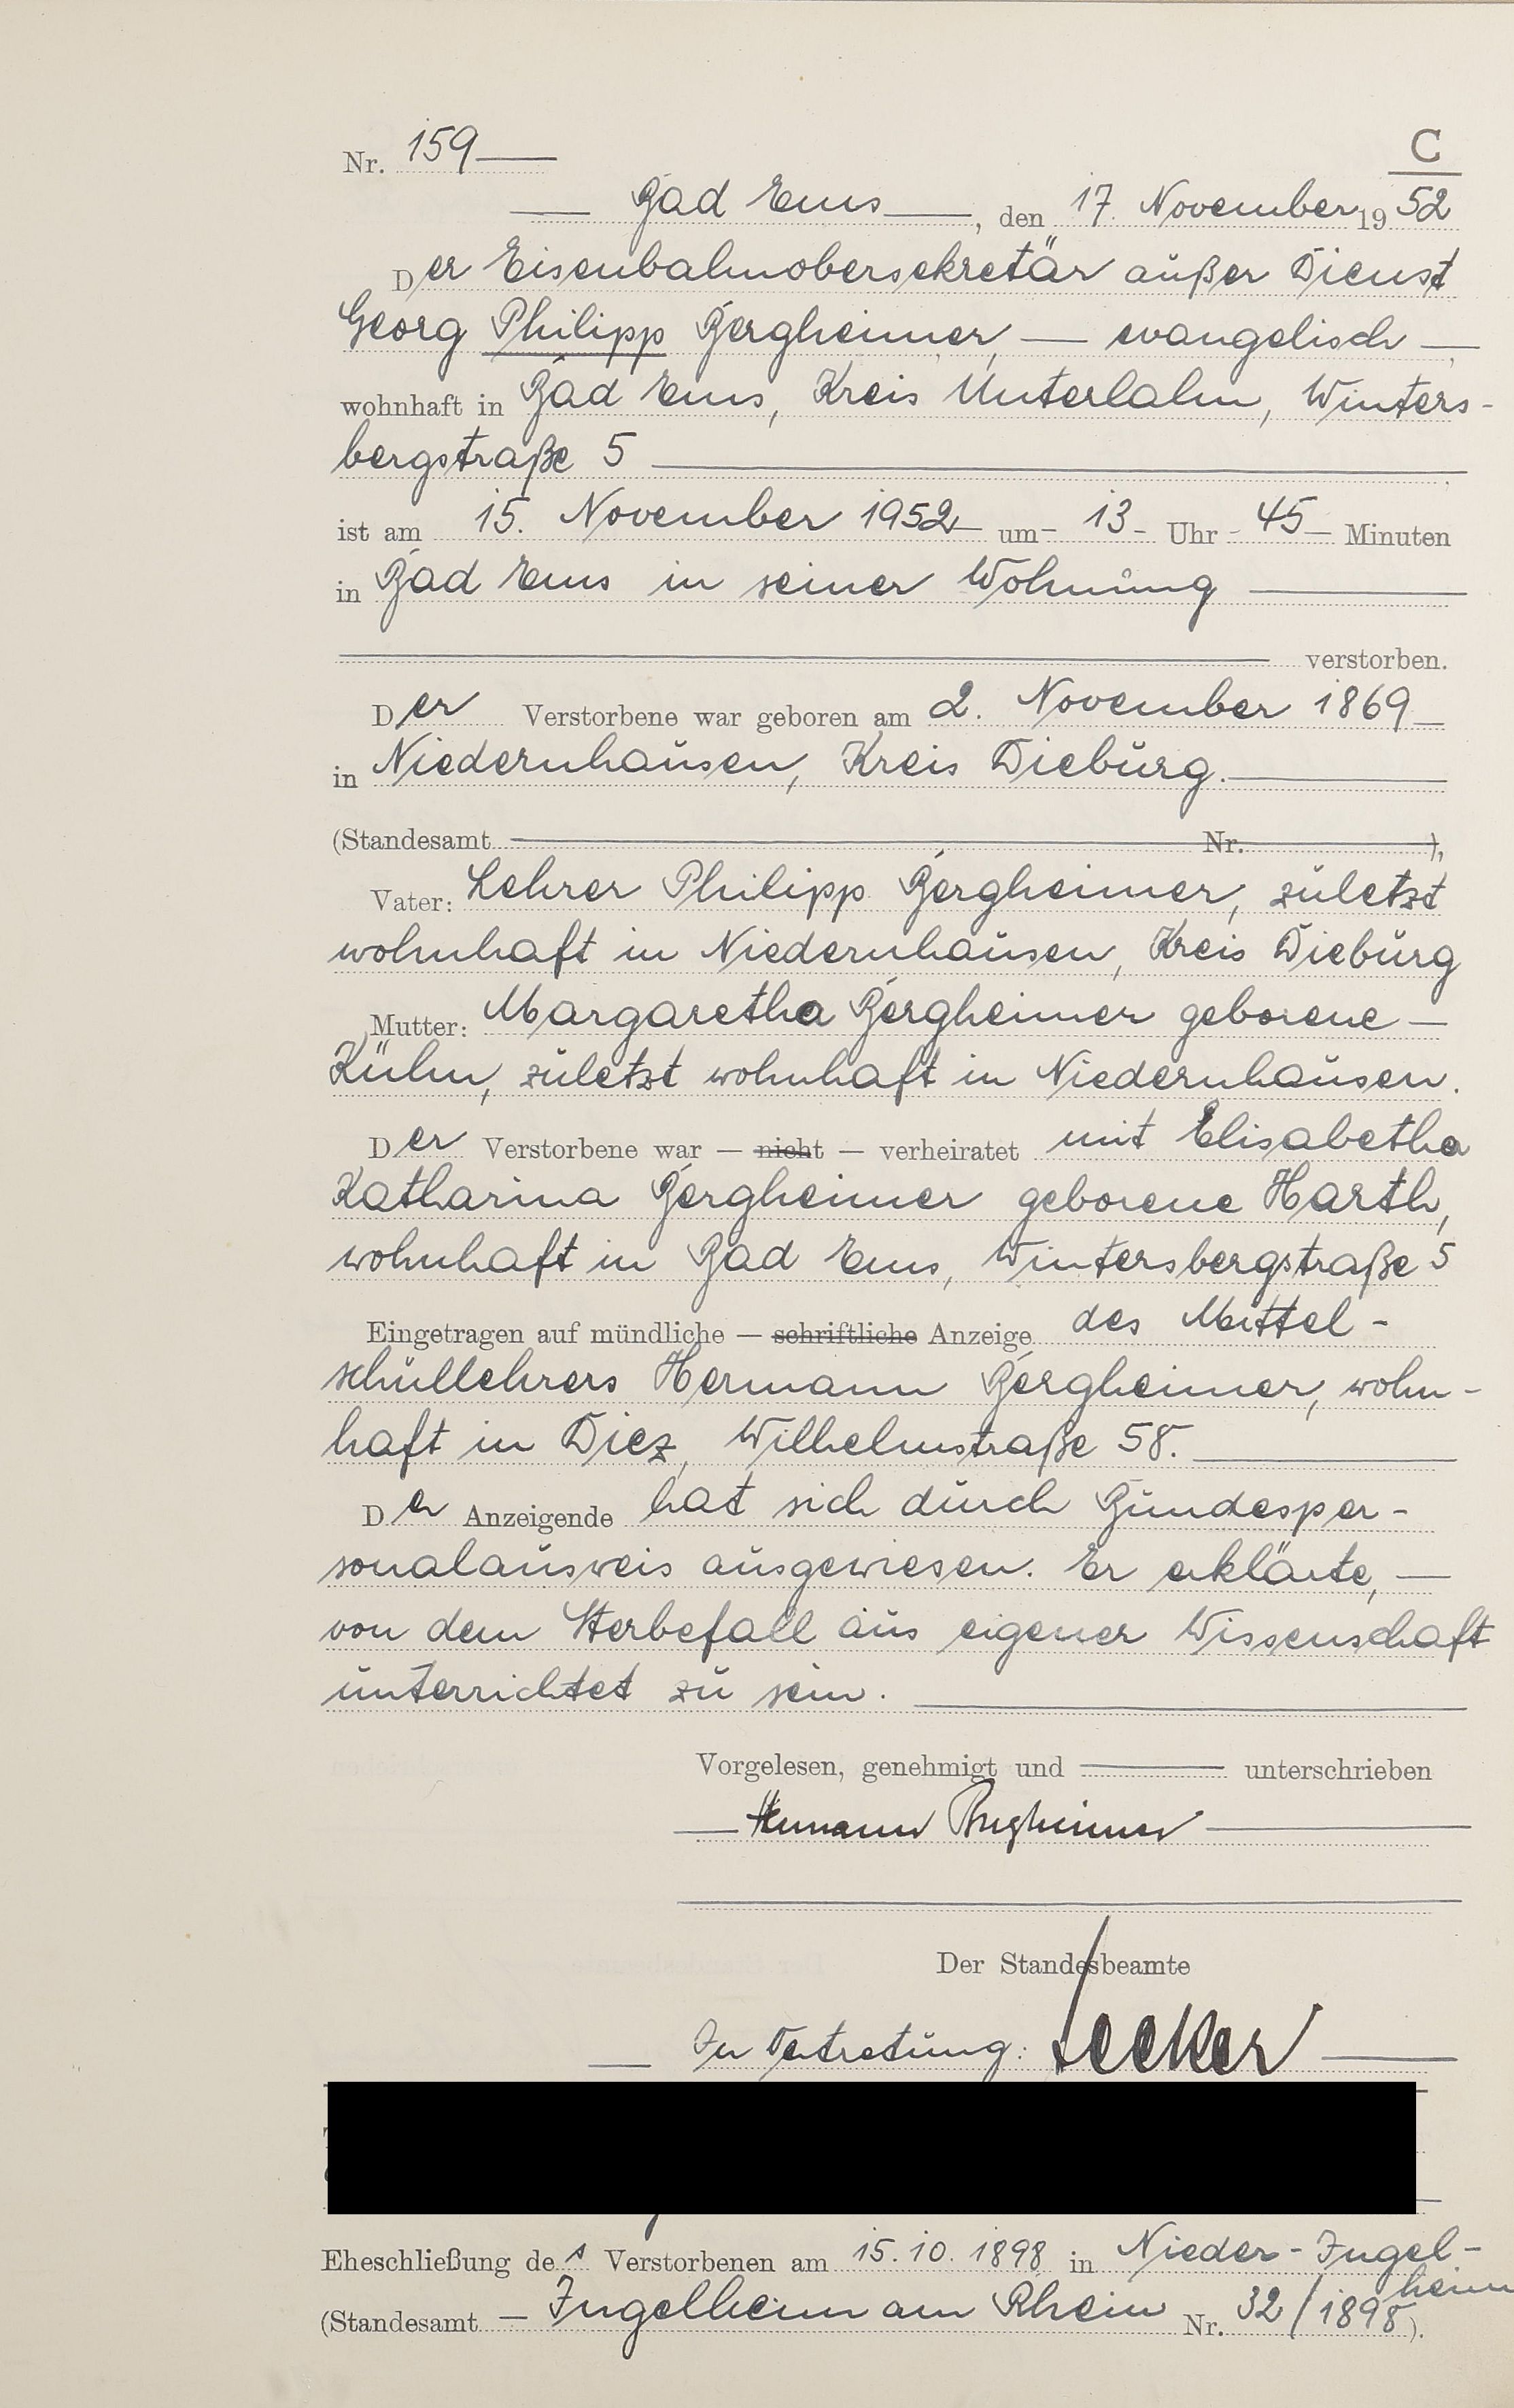 C
Nr. 159
Bad Ems, den 17. November 1952
Der Eisenbahnobersekretär außer Dienst
Georg Philipp Bergheimer, — evangelisch —
wohnhaft in Bad Ems, Kreis Unterlahn, Winters-
bergstraße 5
ist am 15. November 1952 um 13 Uhr 45 Minuten
in Bad Ems in seiner Wohnung
verstorben.
Der Verstorbene war geboren am 2. November 1869
in Niedernhausen, Kreis Dieburg.
(Standesamt Nr. ),
Vater: Lehrer Philipp Bergheimer, zuletzt
wohnhaft in Niedernhausen, Kreis Dieburg
Mutter: Margaretha Bergheimer geborene —
Kühn, zuletzt wohnhaft in Niedernhausen.
Der Verstorbene war — nicht — verheiratet mit Elisabetha
Katharina Bergheimer geborene Harth,
wohnhaft in Bad Ems, Wintersbergstraße 5
Eingetragen auf mündliche — schriftliche Anzeige des Mittel-
schullehrers Hermann Bergheimer, wohn-
haft in Diez, Wilhelmstraße 58.
Der Anzeigende hat sich durch Bundesper-
sonalausweis ausgewiesen. Er erklärte, —
von dem Sterbefall aus eigener Wissenschaft
unterrichtet zu sein.
Vorgelesen, genehmigt und unterschrieben
Hermann Bergheimer
Der Standesbeamte
In Vertretung:
Eheschließung des Verstorbenen am 15.10.1898 in Nieder-Ingel-
heim
(Standesamt — Ingelheim am Rhein Nr. 32/1898).